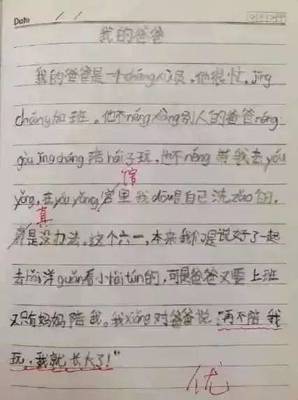 Date
我的爸爸
我的爸爸是一个chǎng长,他很忙,jīng
cháng加班。他不néngxiàng别人的爸爸néng
gòu jīngcháng陪hái子玩,他不néng带我去yóu
馆
yǒng,去yóu yǒng 里我dōu自己洗zǎo的,
真
是没办法。这个六一,本来我们是说好了一起
去hǎi洋guǎn看小hǎi tún的,可是爸爸又要上班
又只有妈妈陪我。我xiǎng对爸爸说"再不陪我
玩,我就长大了!"
优